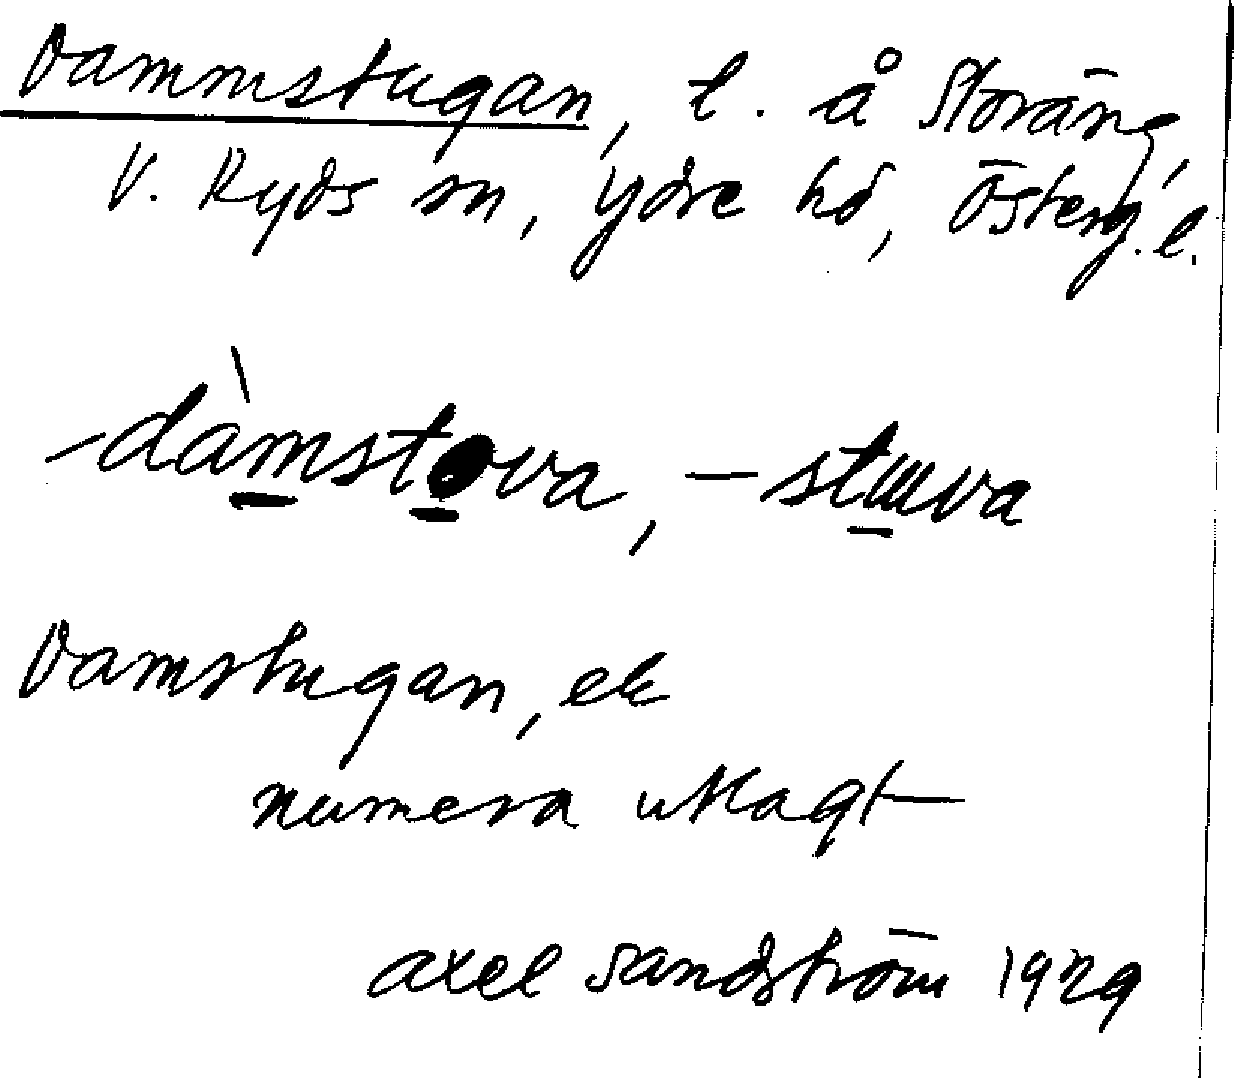 Dammstugan, l. å Storäng,
V. Ryds sn, Ydre hd, Österg. l.
-dàmstova, -stuva
Damstugan, ek
numera utlagt
Axel Sandström 1929